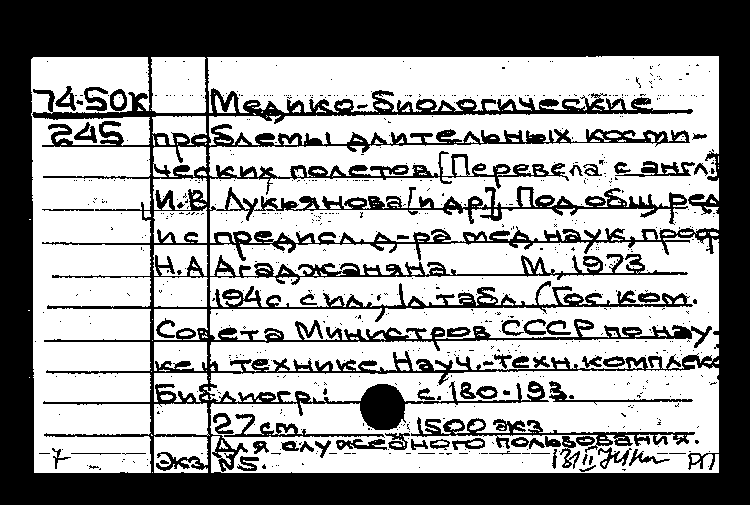 74-50К Медико-биологические
245 проблемы длительных косми-
ческих полетов. [Перевела с англ.]
И.В. Лукьянова [и др.]. Под общ. ред.
и с предисл. д-ра мед. наук, проф.
Н.А Агаджаняна. М., 1973.
194 с. с ил.; 1 л. табл. (Гос. ком.
Совета Министров СССР по нау-
ке и технике. Науч.-техн. комплекс
Библиогр.: с. 180-193.
27 см. 1500 экз.
Для служебного пользования.
Экз. №5. РП